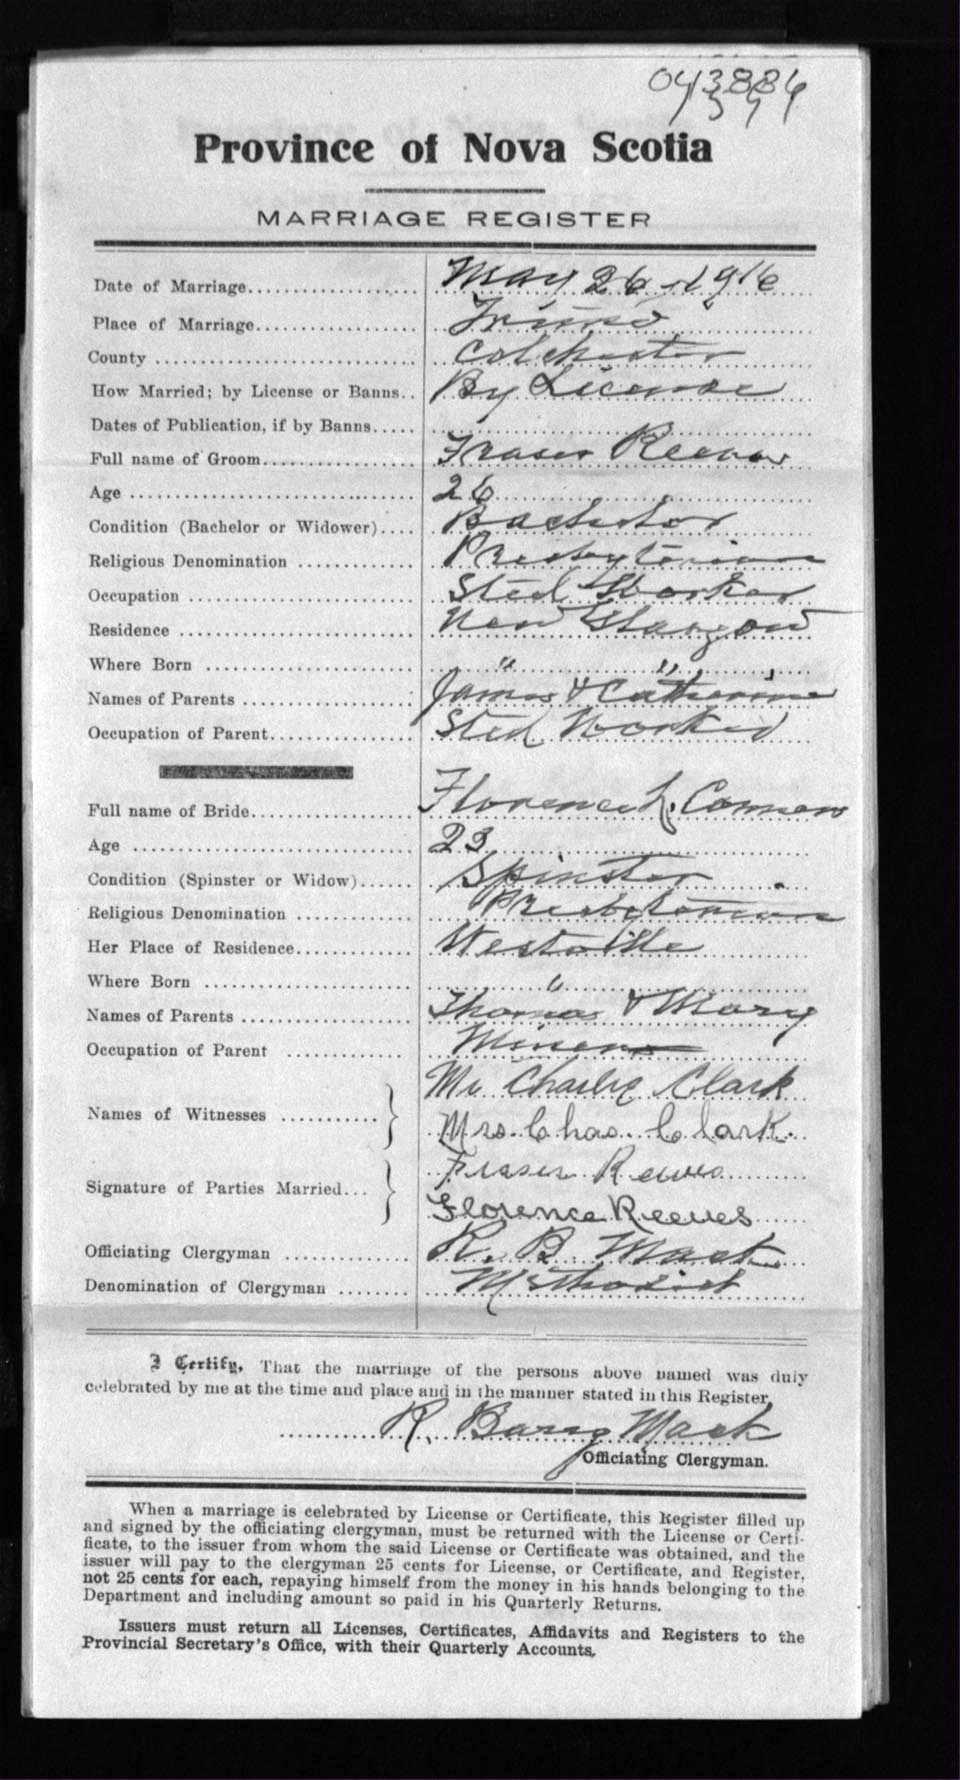 043886
Province of Nova Scotia
MARRIAGE REGISTER
Date of Marriage.................. May 26 - 1916
Place of Marriage................. Truro
County ........................... Colchester
How Married; by License or Banns.. By License
Dates of Publication, if by Banns.....
Full name of Groom................ Fraser Reeves
Age .............................. 26
Condition (Bachelor or Widower).... Bachelor
Religious Denomination ............ Presbyterian
Occupation ....................... Steel Worker
Residence ........................ New Glasgow
Where Born ....................... " "
Names of Parents ................. James & Catherine
Occupation of Parent.............. Steel Worker
Full name of Bride................ Florence L.
Age .............................. 23
Condition (Spinster or Widow)...... Spinster
Religious Denomination ............ Presbyterian
Her Place of Residence............ Westville
Where Born ....................... "
Names of Parents ................. Thomas & Mary
Occupation of Parent ............. Miner
Names of Witnesses ............ } Mr Charlie Clark
Mrs. Chas. Clark.
Signature of Parties Married... } Fraser Reeves
Florence Reeves
Officiating Clergyman ............ R. B. Mack
Denomination of Clergyman ........ Methodist
I Certify, That the marriage of the persons above named was duly
celebrated by me at the time and place and in the manner stated in this Register,
R. Barry Mack
Officiating Clergyman.
When a marriage is celebrated by License or Certificate, this Register filled up
and signed by the officiating clergyman, must be returned with the License or Certi-
ficate, to the issuer from whom the said License or Certificate was obtained, and the
issuer will pay to the clergyman 25 cents for License, or Certificate, and Register,
not 25 cents for each, repaying himself from the money in his hands belonging to the
Department and including amount so paid in his Quarterly Returns.
Issuers must return all Licenses, Certificates, Affidavits and Registers to the
Provincial Secretary's Office, with their Quarterly Accounts.